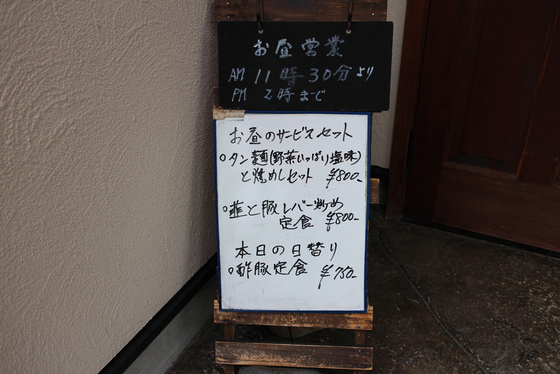 お昼営業
AM 11時30分より
PM 2時まで
お昼のサービスセット
○タン麺(野菜いっぱい塩味)
と焼めしセット ¥800-
○韮と豚レバー炒め
定食 ¥800-
本日の日替り
○酢豚定食 ¥750-